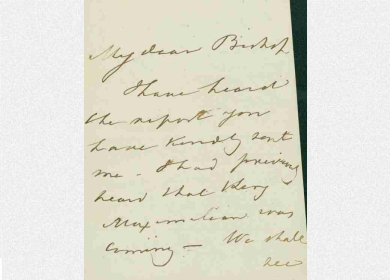 My dear Bishop
I have heard
the report you
have kindly sent
me - I had previously
heard that
Maximilian was
coming - We shall
see